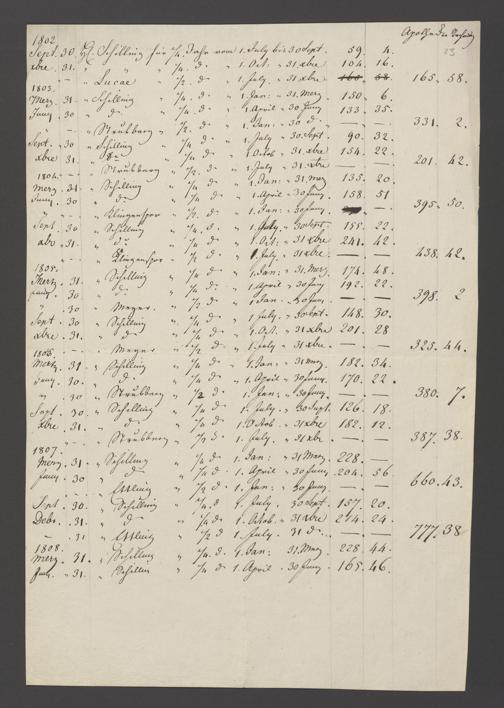 23
1802.
Sept. 30. Schilling für ¼ Jahr vom 1. July bis 30 Sept. 59. 4.
xbre 31. " " ¼ d° " 1. Oct. " 31 xbre 104. 16.
" Lucae " ½ d° " 1. July " 31 xbre 165. 58.
1803.
Merz 31 " Schilling " ¼ d° " 1. Jan: " 31 Merz 150. 6
Juny 30 " d° " ¼ d° " 1 April " 30 Juny 133. 35.
" Strubberg " ½ d° " 1. Jan: " 30 d° — — 331. 2.
Sept. 30 " Schilling " ¼ d° " 1. July " 30 Sept. 90. 32
xbre 31. " d° " ¼ d° " 1. Octob " 31 xbre 154. 22
" Strubberg " ½ d° " 1 July " 31 xbre — — 201. 42.
1804.
Merz 31 " Schilling " ¼ d° " 1. Jan: " 31 Merz 135. 20.
Juny. 30 " d° " ¼ d° " 1. April " 30 Juny. 158. 51
" Klingenspor " ½ d° " 1. Jan: " 30 Juny. 395. 50.
Sept. 30 " Schilling " ¼ d° " 1. July " 30 Sept. 155. 22.
xbr. 31. " d° " ¼ d° " 1. Oct: " 31 xbre 241. 42
" Klingenspor " ½ d° " 1. July " 31 xbre — — 438. 42.
1805.
Merz. 31. " Schilling " ¼ d° " 1 Jan: " 31. Merz. 174. 48.
Juny. 30 " d° " ¼ d° " 1 April " 30 Juny 192. 22
" 30 " Meyer. " ½ d° " 1 Jan. " 30 Juny. — — 398. 2
Sept. 30 " Schilling " ¼ d° " 1. July. " 30 Sept. 148. 30.
xbre 31. " d° " ¼ d° " 1. Oct. " 31 xbre 201. 28
" Meyer " ½ d° " 1 July " 31 xbre — — 325. 44.
1806.
Merz. 31 " Schilling " ¼ d° " 1. Jan: " 31 Merz. 182. 34.
Juny. 30. " d° " ¼ d° " 1. April " 30 Juny. 170. 22.
" 30 " Strubberg " ½ d° " 1. Jan: " 30 Juny. — — 380. 7.
Sept. 30 " Schilling " ¼ d° " 1. July. " 30 Sept. 126. 18.
xbre 31. " d° " ¼ d° " 1. Octob. " 31 xbre 182. 12
" Strubberg " ½ d° " 1. July. " 31 xbr. — — 387. 38.
1807.
Merz. 31. " Schilling " ¼ d° " 1. Jan: " 31 Merz. 228. —
Juny. 30. " d° " ¼ d° " 1. April " 30 Juny. 204. 56
" ½ d° " 1. Jan: " 30 Juny. — — 660. 43.
Sept. 30. " Schilling " ¼ d° " 1. July. " 30 Sept. 157. 20.
Debr. 31. " d° " ¼ d° " 1. Octob. " 31 xbre 214. 24.
— . 31. " ½ d° 1. July. " 31 d° — — 777. 38
1808.
Merz. 31. " Schilling " ¼ d° " 1. Jan: 31. Merz. 228. 44.
Juny. " 31. " Schilling " ¼ d° " 1. April " 30 Juny. 165. 46.